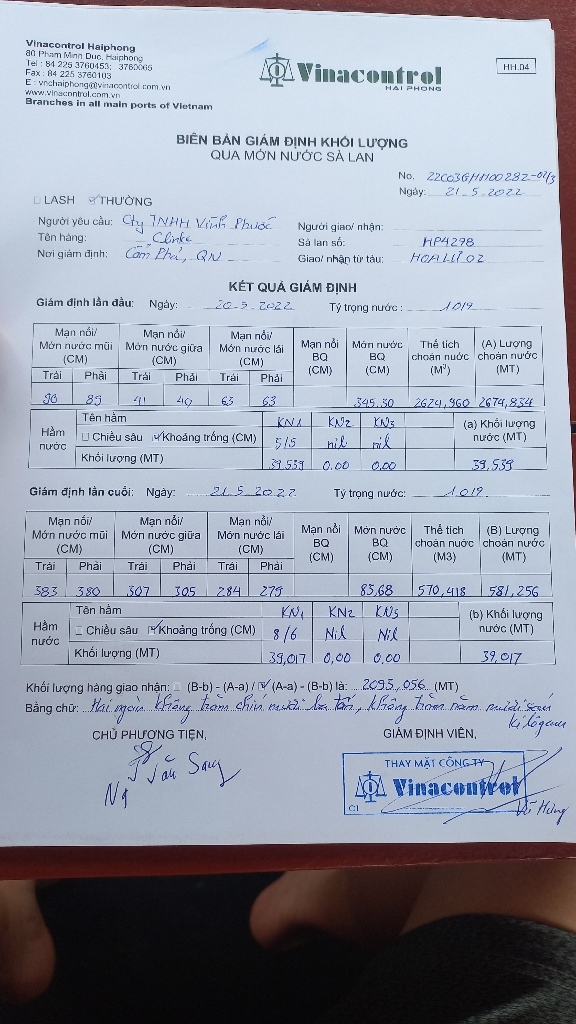 Vinacontrol Haiphong
80 Pham Minh Duc, Haiphong
Tel : 84 225 3760453; 3760065
Fax : 84 225 3760103
E : vnchaiphong@vinacontrol.com.vn
www.vinacontrol.com.vn
Branches in all main ports of Vietnam
Vinacontrol
HAI PHONG
HH.04
BIÊN BẢN GIÁM ĐỊNH KHỐI LƯỢNG
QUA MỚN NƯỚC SÀ LAN
No. 22C03GHH00282-02/3
Ngày: 21-5-2022
LASH THƯỜNG
Người yêu cầu: Cty TNHH Vĩnh Phước Người giao/ nhận:
Tên hàng: Clinke Sà lan số: HP4298
Nơi giám định: Cẩm Phả, QN Giao/ nhận từ tàu: HOALU 02
KẾT QUẢ GIÁM ĐỊNH
Giám định lần đầu: Ngày: 20-5-2022 Tỷ trọng nước : 1.019
Mạn nổi/ Mớn nước mũi (CM) Mạn nổi/ Mớn nước giữa (CM) Mạn nổi/ Mớn nước lái (CM) Mạn nổi BQ (CM) Mớn nước BQ (CM) Thể tích choán nước (M³) (A) Lượng choán nước (MT)
Trái Phải Trái Phải Trái Phải
90 89 41 40 63 63 345.30 2624,960 2674,834
Hầm nước Tên hầm KN1 KN2 KN3 (a) Khối lượng nước (MT)
Chiều sâu Khoảng trống (CM) 5/5 nil nil
Khối lượng (MT) 39.539 0.00 0,00 39,539
Giám định lần cuối: Ngày: 21.5.2022 Tỷ trọng nước: 1.019
Mạn nổi/ Mớn nước mũi (CM) Mạn nổi/ Mớn nước giữa (CM) Mạn nổi/ Mớn nước lái (CM) Mạn nổi BQ (CM) Mớn nước BQ (CM) Thể tích choán nước (M3) (B) Lượng choán nước (MT)
Trái Phải Trái Phải Trái Phải
383 380 307 305 284 279 83,68 570,418 581,256
Hầm nước Tên hầm KN1 KN2 KN3 (b) Khối lượng nước (MT)
Chiều sâu Khoảng trống (CM) 8/6 Nil Nil
Khối lượng (MT) 39,017 0,00 0,00 39,017
Khối lượng hàng giao nhận: (B-b) - (A-a) / (A-a) - (B-b) là: 2093,056 (MT)
Bằng chữ: Hai ngàn không trăm chín mươi ba tấn, không trăm năm mươi sáu
kilôgam
CHỦ PHƯƠNG TIỆN, GIÁM ĐỊNH VIÊN,
THAY MẶT CÔNG TY
Vinacontrol
C1